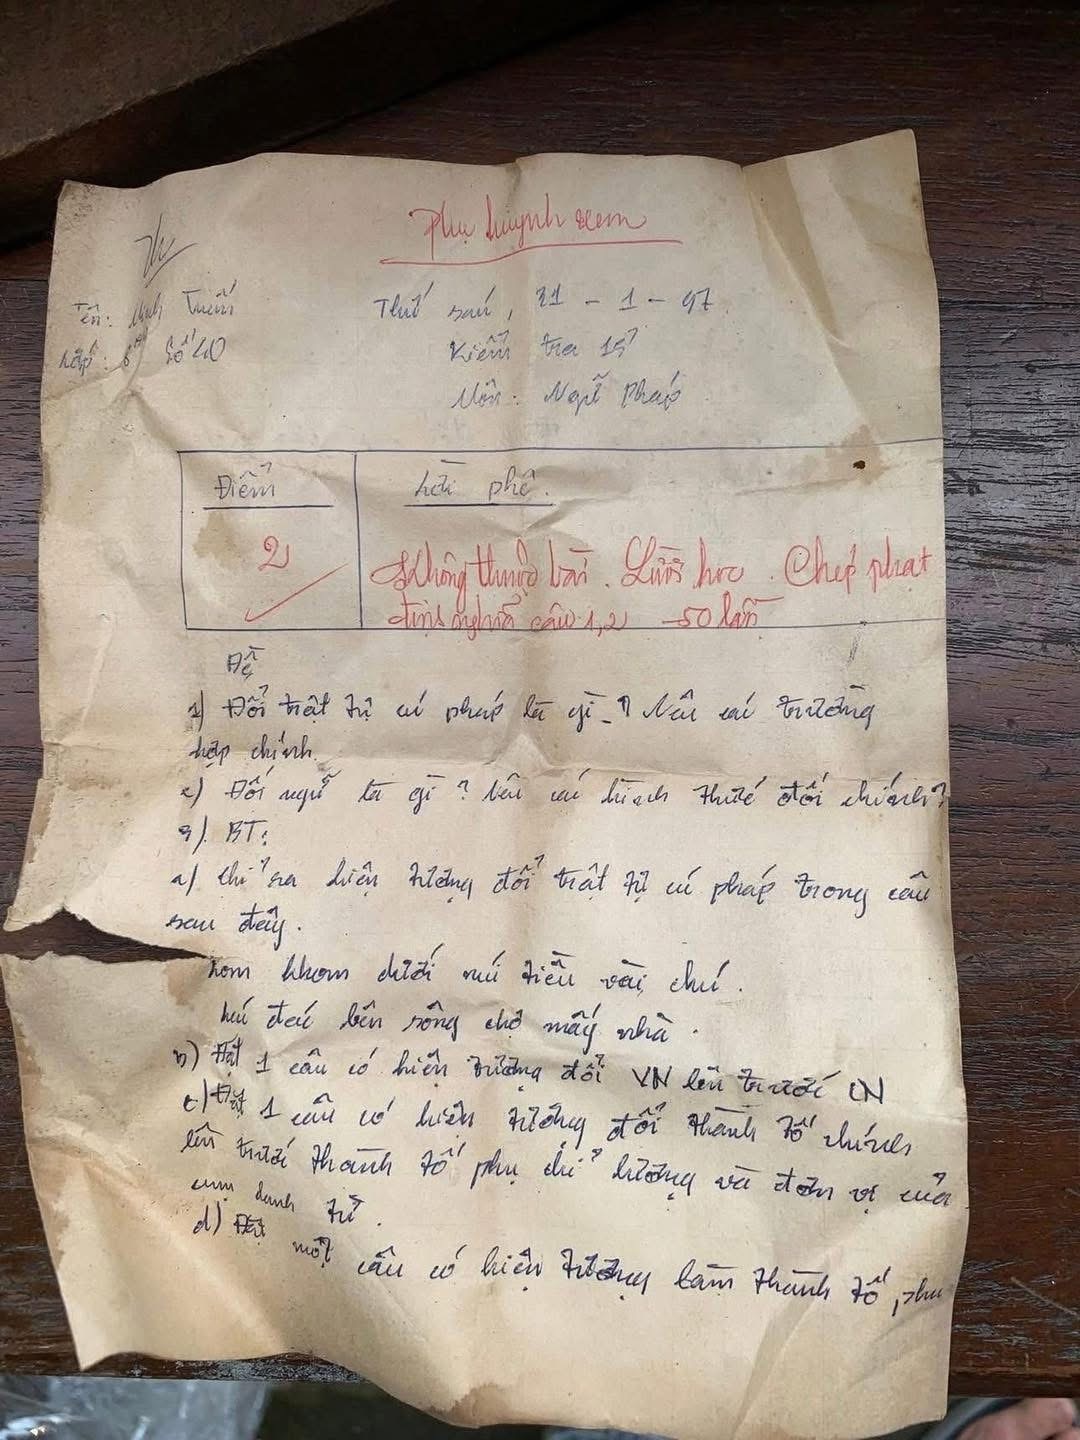 Phụ huynh xem
Tên: Minh Tuấn
Thứ sáu, 31 - 1 - 97
Lớp: 6 Số 40
Kiểm tra 15'
Môn: Ngữ Pháp
Điểm
Lời phê.
2
Không thuộc bài. Lười học. Chép phạt
định nghĩa câu 1, 2 50 lần
Đề
1) Đổi trật tự cú pháp là gì? Nêu các trường
hợp chính.
2) Đối ngữ là gì? Nêu các hình thức đối chính?
3) BT:
a) Chỉ ra hiện tượng đổi trật tự cú pháp trong câu
sau đây.
Lom khom dưới núi tiều vài chú.
Lác đác bên sông chợ mấy nhà.
b) Đặt 1 câu có hiện tượng đổi VN lên trước CN
c) Đặt 1 câu có hiện tượng đổi thành tố chính
lên trước thành tố phụ chỉ lượng và đơn vị của
cụm danh từ.
d) Đặt một câu có hiện tượng làm thành tố phụ